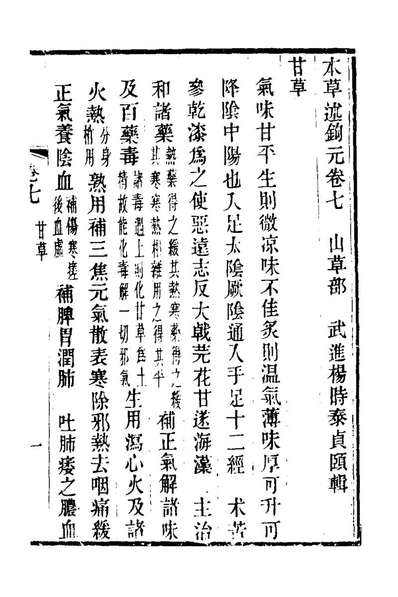 本草述鉤元卷七　山草部　武進楊時泰貞頤輯
甘草
氣味甘平生則微涼味不佳炙則溫氣薄味厚可升可
降陰中陽也入足太陰厥陰通入手足十二經　朮苦
參乾漆為之使惡遠志反大戟芫花甘遂海藻　主治
和諸藥熱藥得之緩其熱寒藥得之緩其寒寒熱相雜用之得其平補正氣解諸味
及百藥毒諸毒遇土則化甘草為土精故能化毒解一切邪氣生用瀉心火及諸
火熱分身梢用熟用補三焦元氣散表寒除邪熱去咽痛緩
正氣養陰血補傷寒瘥後血虛補脾胃潤肺　吐肺痿之膿血
卷七　甘草　一